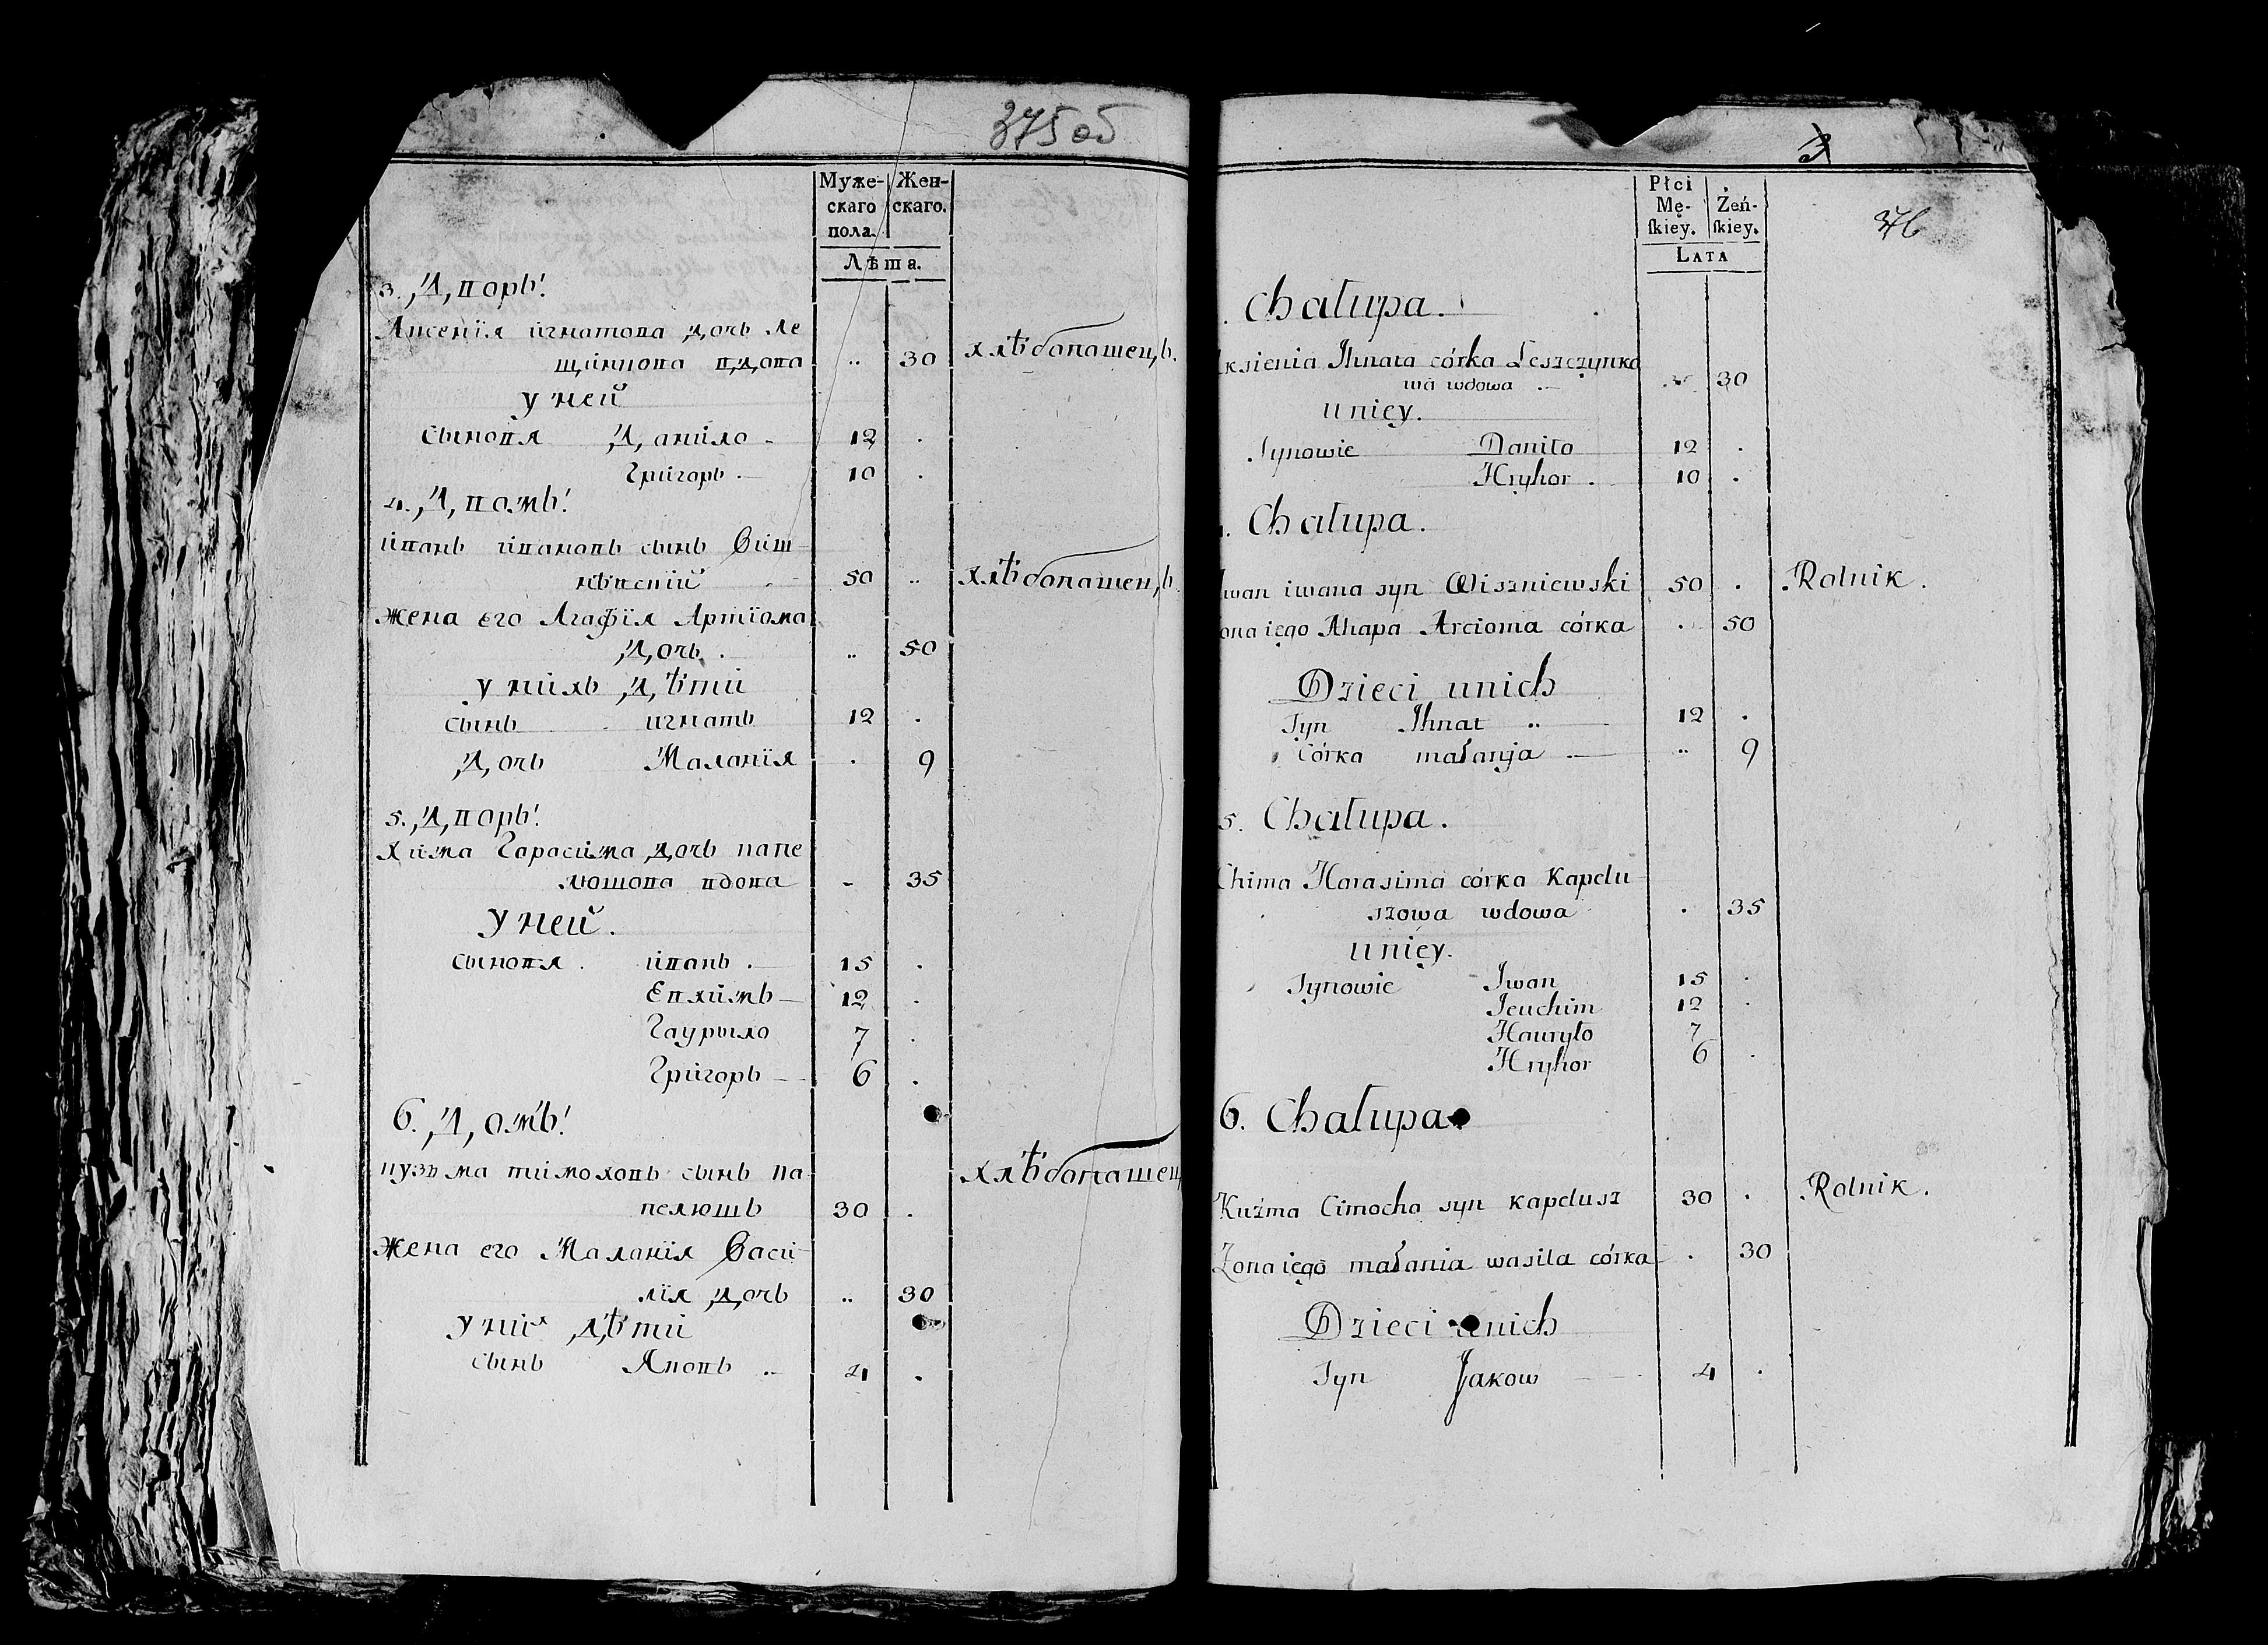 375 об
Муже-
скаго
пола.
Жен-
скаго.
Лѣта.
3. Дворъ!
Аксенія игнатова дочь Ле
щинкова вдова .. 30 хлѣбопашецъ.
у ней
Сыновя Данило - 12 .
Григоръ . 10 .
4. Домъ!
иванъ ивановъ сынъ Виш
нѣвскій 50 .. хлѣбопашецъ.
Жена его Агафія Артіома
Дочь . .. 50
у нихъ Дѣти
Сынъ игнатъ 12 .
Дочь Маланія . 9
5. Дворъ!
Хима Гарасима дочь капе
люшова вдова - 35
у ней.
Сыновя . иванъ . 15 .
Евхимъ 12 .
Гаурыло 7 .
Григоръ 6 .
6. Домъ!
кузьма тимоховъ сынъ ка
пелюшъ 30 . хлѣбопашец
Жена его Маланія Васи
лія дочь .. 30
у них дѣти
Сынъ Яковъ .. 4 .
3
376
Płci
Mę-
skiey.
Żeń-
skiey.
LATA
. Chałupa.
ksienia Ihnata córka Leszczynko
wa wdowa .. 30
u niey.
Synowie Daniło 12 .
Hryhor . 10 .
. Chałupa.
wan iwana syn Wiszniewski 50 . Rolnik.
ona iego Ahapa Arcioma córka . 50
Dzieci u nich
Syn Ihnat .. 12 .
Córka małanja .. 9
5. Chałupa.
Chima Harasima córka Kapelu
szowa wdowa . 35
u niey.
Synowie Iwan 15 .
Jeuchim 12 .
Hauryło 7
Hryhor 6 .
6. Chałupa
Kuźma Cimocha syn Kapelusz 30 . Rolnik.
Zona iego małania wasila córka . 30
Dzieci u nich
Syn Jakow 4 .